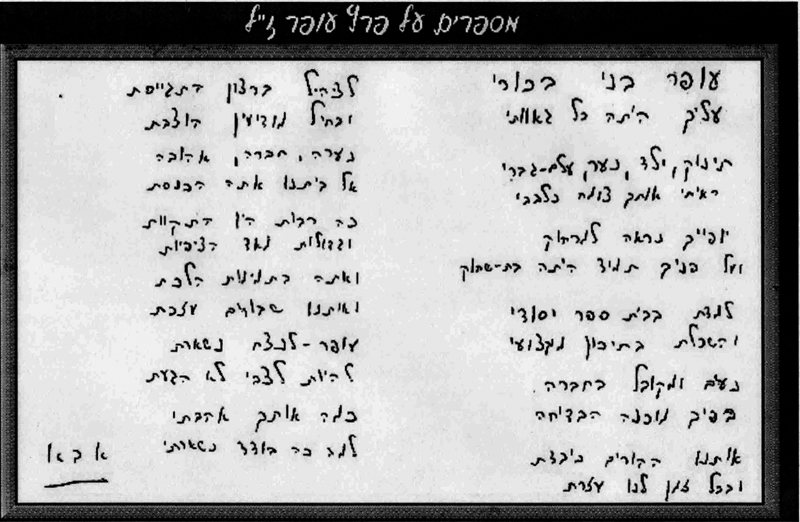 מספרים על פרץ עופר ז"ל
עופר בני בכורי
עליך היתה כל גאוותי
תינוק, ילד, נער, עלם-גברי
ראיתי אותך צומח כלבבי
יופייך נראה למרחוק
ועל פניך תמיד היתה בת-שחוק
למדת בבית ספר יסודי
והשכלת בתיכון מקצועי
נעים ומקובל בחברה
בפיך מוכנה הבדיחה
אותנו ההורים כיבדת
ובכל זמן לנו עזרת
לצה"ל ברצון התגייסת
ובחיל מודיעין הוצבת
נערה, חברה, אהובה
אל ביתנו אתה הכנסת
כה רבות היו התקוות
וגדולות מאד הציפיות
ואתה בתמימות הלכת
ואותנו שבורים עזבת
עופר-לנצח נשארת
להיות לצבי לא הגעת
כמה אותך אהבתי
למה כה בודד נשארתי
אבא